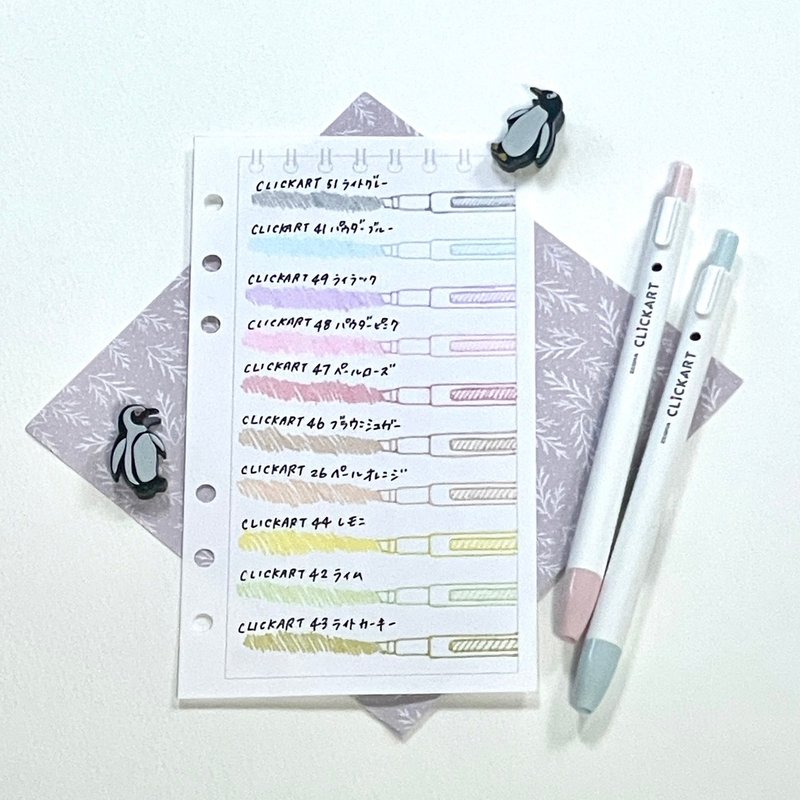 CLICKART 51 ライトグレー
CLICKART 41 パウダーブルー
CLICKART 49 ライラック
CLICKART 48 パウダーピンク
CLICKART 47 ペールローズ
CLICKART 46 ブラウンシュガー
CLICKART 26 ペールオレンジ
CLICKART 44 レモン
CLICKART 42 ライム
CLICKART 43 ライトカーキー
ZEBRA CLICKART
ZEBRA CLICKART